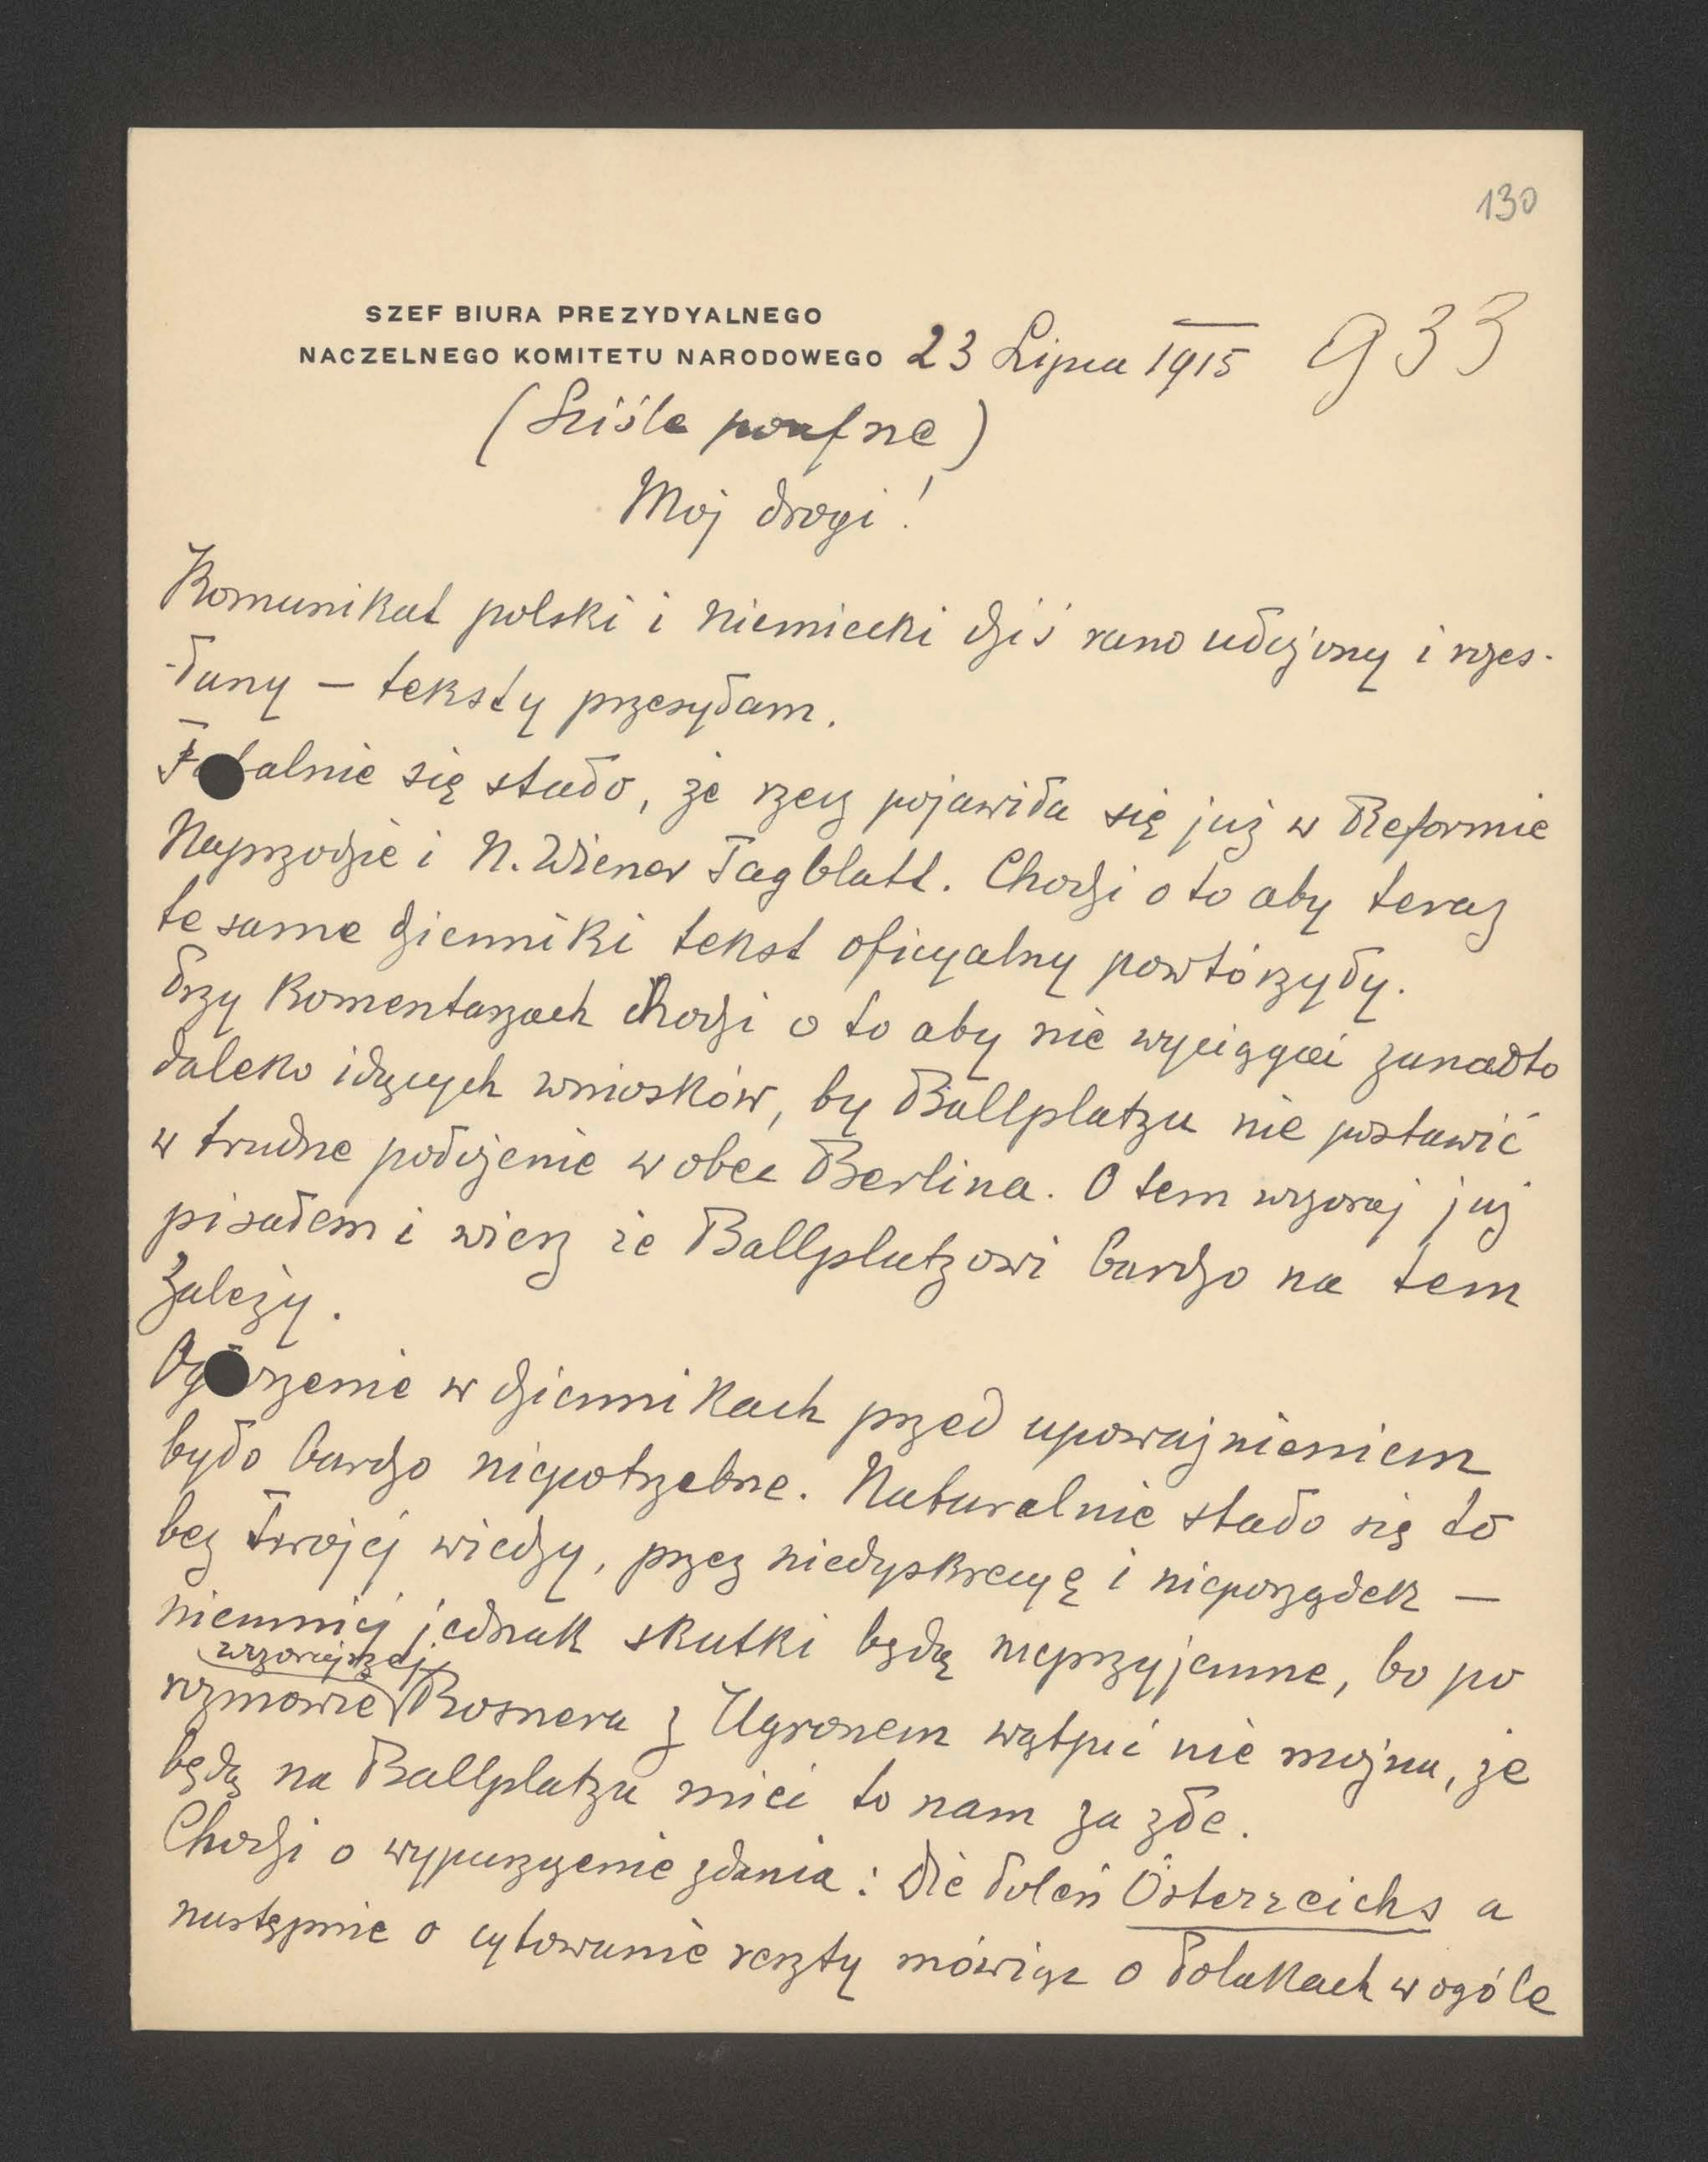 130
SZEF BIURA PREZYDYALNEGO
NACZELNEGO KOMITETU NARODOWEGO 23 Lipca 1915 933
(Ściśle poufne)
Mój drogi!
Komunikat polski i niemiecki dziś rano udzjony i rozes-
-łany – teksty przesyłam.
Fatalnie się stało, że rzecz pojawiła się już w Reformie
Naprzodzie i N. Wiener Tagblatt. Chodzi o to aby teraz
te same dzienniki tekst oficyalny powtórzyły.
Przy komentarzach chodzi o to aby nie wyciągać zanadto
daleko idących wniosków, by Ballplatzu nie postawić
w trudne położenie wobec Berlina. O tem wczoraj już
pisałem i wiesz że Ballplatzowi bardzo na tem
zależy.
Ogłoszenie w dziennikach przed upoważnieniem
było bardzo niepotrzebne. Naturalnie stało się to
bez Twojej wiedzy, przez niedyskrecyę i nieporządek –
niemniej jednak skutki będą nieprzyjemne, bo po
wczorajszej
rozmowie Rosnera z Ugronem wątpić nie można, że
będą na Ballplatzu mieć to nam za złe.
Chodzi o wypuszczenie zdania: die Polen Österreichs a
następnie o cytowanie reszty mówiąc o Polakach wogóle